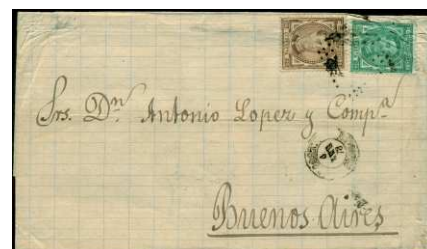 Srs. Dn. Antonio Lopez y Compa.
Buenos Aires